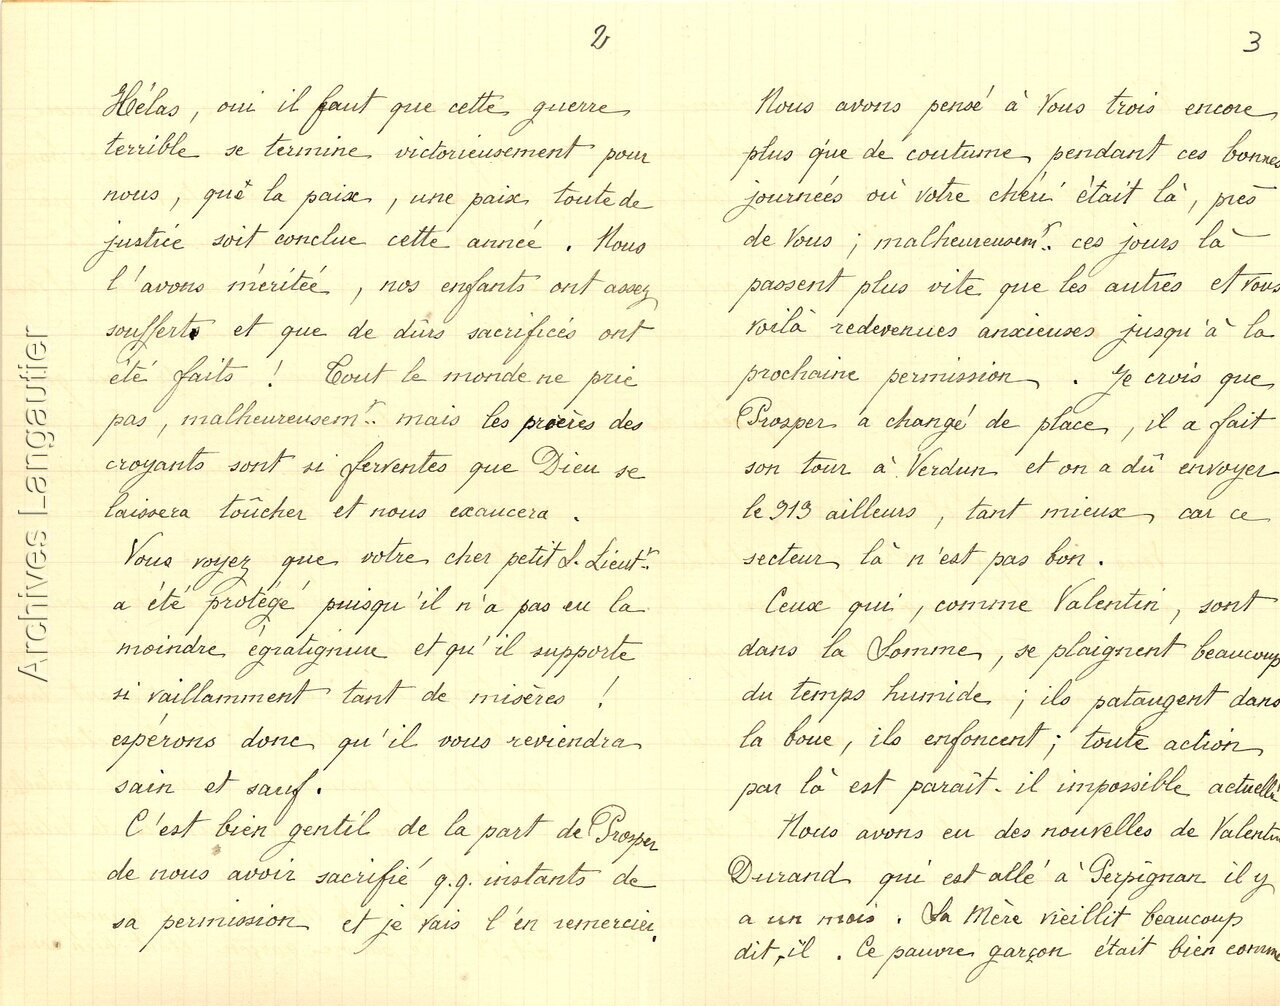 2
Hélas, oui il faut que cette guerre
terrible se termine victorieusement pour
nous, que la paix, une paix toute de
justice soit conclue cette année. Nous
l'avons méritée, nos enfants ont assez
souffert et que de durs sacrifices ont
été faits ! Tout le monde ne prie
pas, malheureusemt.. mais les prières des
croyants sont si ferventes que Dieu se
laissera toucher et nous exaucera.
Vous voyez que votre cher petit S. Lieutt..
a été protégé puisqu'il n'a pas eu la
moindre égratignure et qu'il supporte
si vaillamment tant de misères !
espérons donc qu'il vous reviendra
sain et sauf.
C'est bien gentil de la part de Prosper
de nous avoir sacrifié q.q. instants de
sa permission et je vais l'en remercier.
3
Nous avons pensé à Vous trois encore
plus que de coutume, pendant ces bonnes
journées où votre chéri était là, près
de Vous ; malheureusemt.. ces jours là
passent plus vite que les autres et vous
voilà redevenues anxieuses jusqu'à la
prochaine permission. Je crois que
Prosper a changé de place, il a fait
son tour à Verdun et on a dû envoyer
le 913 ailleurs, tant mieux, car ce
secteur là n'est pas bon.
Ceux qui, comme Valentin, sont
dans la Somme, se plaignent beaucoup
du temps humide ; ils pataugent dans
la boue, ils enfoncent ; toute action
par là est paraît-il impossible actuellt
Nous avons eu des nouvelles de Valentin
Durand qui est allé à Perpignan il y
a un mois. Sa Mère vieillit beaucoup
dit-il. Ce pauvre garçon était bien comme
Archives Langautier